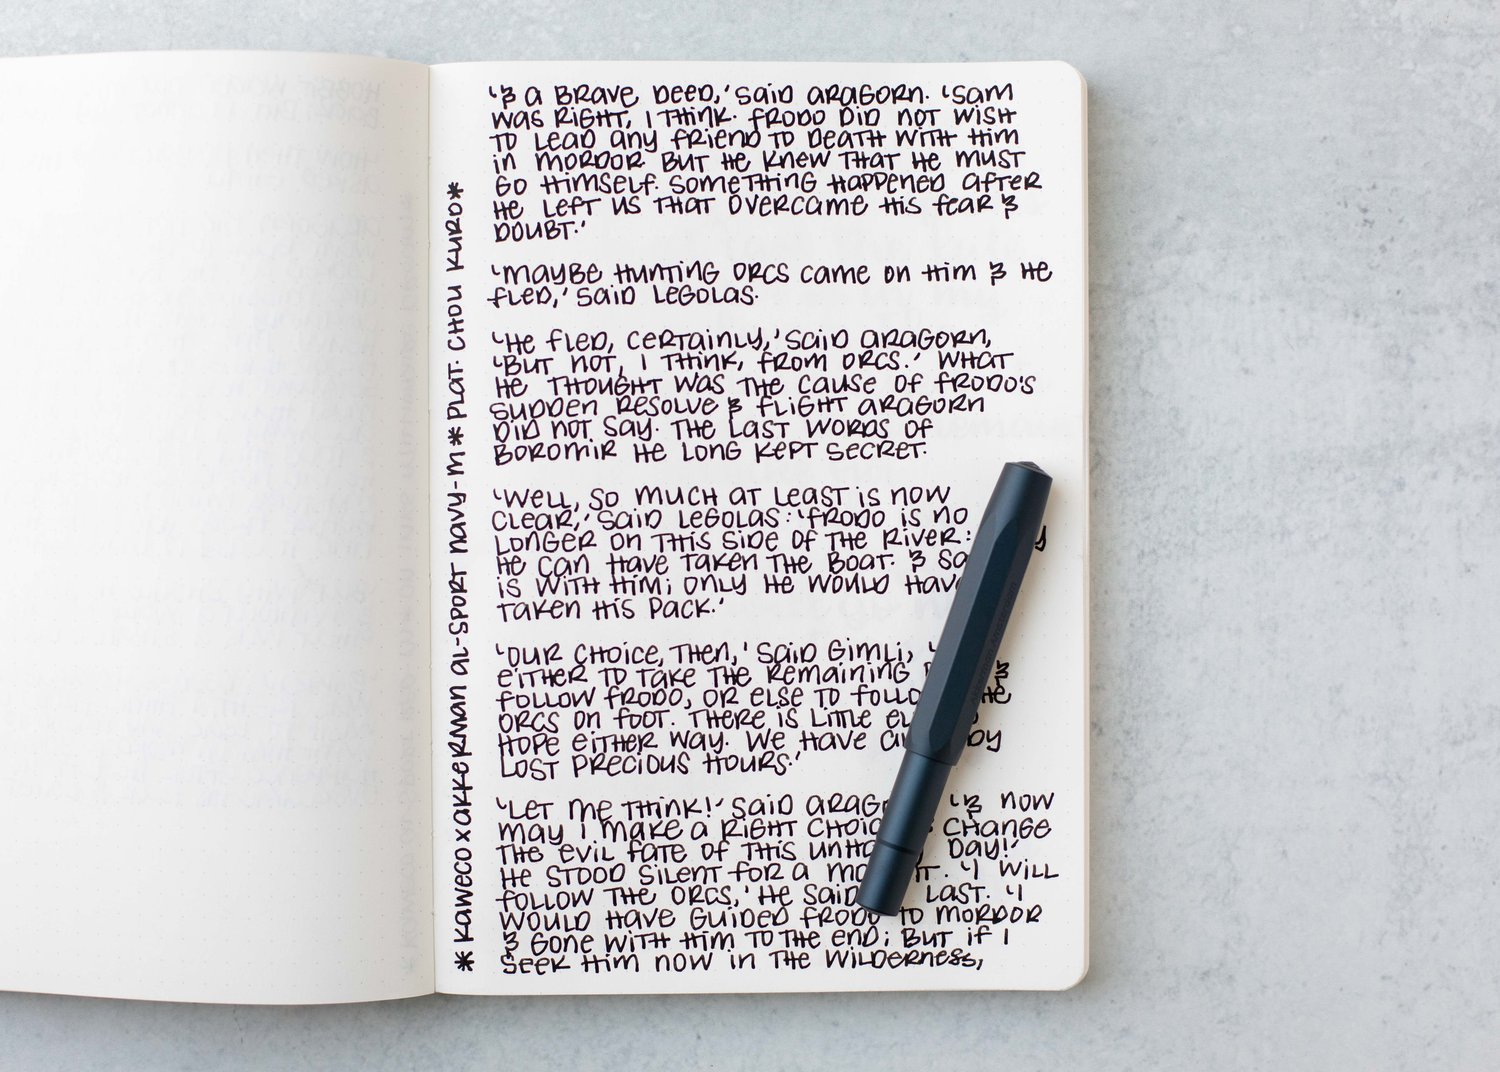 * KAWECO X AKKERMAN AL-SPORT NAVY-M * PLAT. CHOU KURO *
'& A BRAVE DEED,' SAID ARAGORN. 'SAM
WAS RIGHT, I THINK. FRODO DID NOT WISH
TO LEAD ANY FRIEND TO DEATH WITH HIM
IN MORDOR BUT HE KNEW THAT HE MUST
GO HIMSELF. SOMETHING HAPPENED AFTER
HE LEFT US THAT OVERCAME HIS FEAR &
DOUBT.'
'MAYBE HUNTING ORCS CAME ON HIM & HE
FLED,' SAID LEGOLAS.
'HE FLED, CERTAINLY,' SAID ARAGORN,
'BUT NOT, I THINK, FROM ORCS.' WHAT
HE THOUGHT WAS THE CAUSE OF FRODO'S
SUDDEN RESOLVE & FLIGHT ARAGORN
DID NOT SAY. THE LAST WORDS OF
BOROMIR HE LONG KEPT SECRET.
'WELL, SO MUCH AT LEAST IS NOW
CLEAR,' SAID LEGOLAS: 'FRODO IS NO
LONGER ON THIS SIDE OF THE RIVER:
HE CAN HAVE TAKEN THE BOAT. &
IS WITH HIM; ONLY HE WOULD HAVE
TAKEN HIS PACK.'
'OUR CHOICE, THEN,' SAID GIMLI,
EITHER TO TAKE THE REMAINING &
FOLLOW FRODO, OR ELSE TO FOLLOW THE
ORCS ON FOOT. THERE IS LITTLE
HOPE EITHER WAY. WE HAVE
LOST PRECIOUS HOURS.'
'LET ME THINK!' SAID ARAGORN. '& NOW
MAY I MAKE A RIGHT CHOICE & CHANGE
THE EVIL FATE OF THIS UNHAPPY DAY!'
HE STOOD SILENT FOR A MOMENT. 'I WILL
FOLLOW THE ORCS,' HE SAID LAST. 'I
WOULD HAVE GUIDED FRODO TO MORDOR
& GONE WITH HIM TO THE END; BUT IF I
SEEK HIM NOW IN THE WILDERNESS,